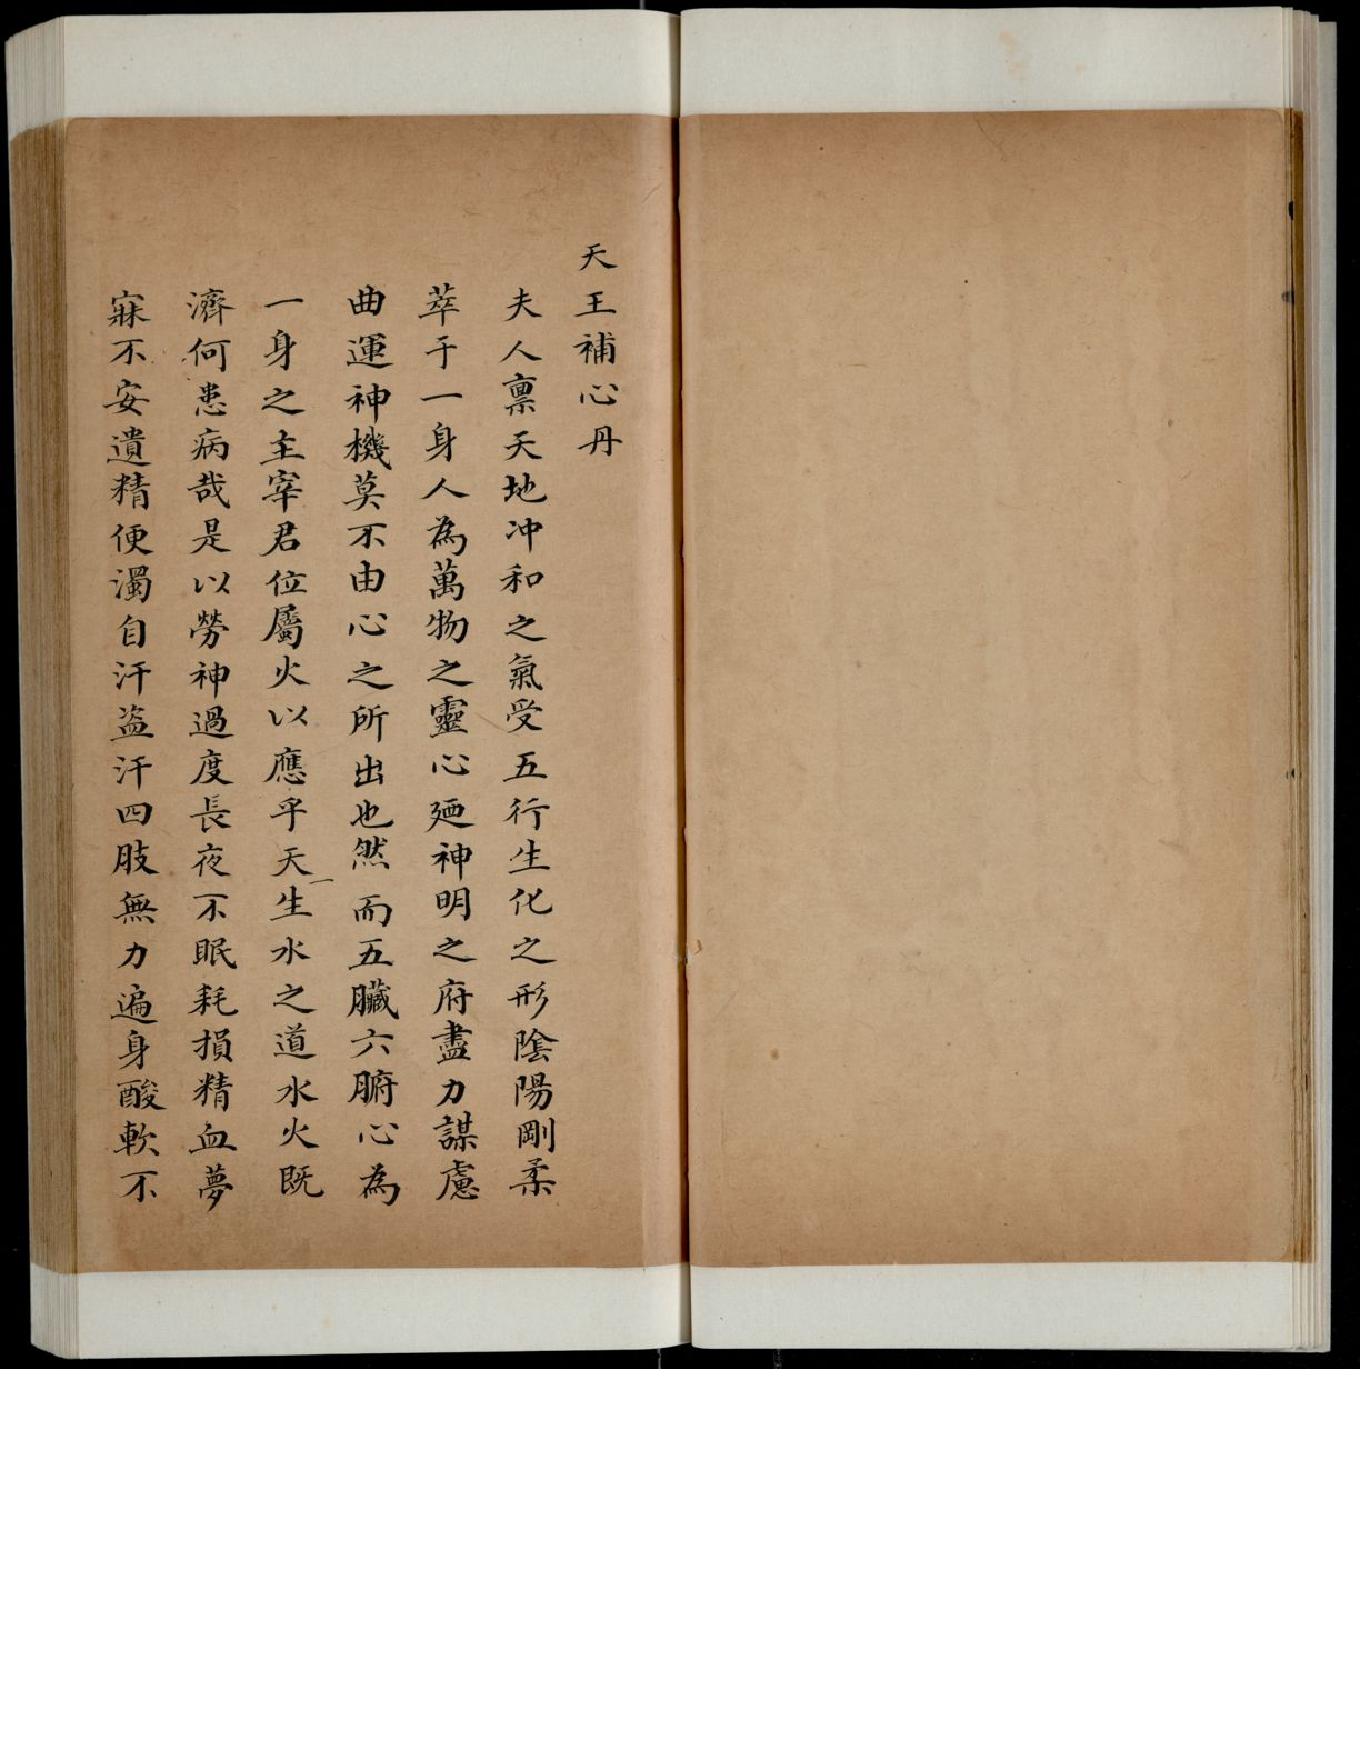 天王補心丹
夫人禀天地冲和之氣受五行生化之形陰陽剛柔
萃于一身人為萬物之靈心廼神明之府盡力謀慮
曲運神機莫不由心之所出也然而五臟六腑心為
一身之主宰君位屬火以應乎天一生水之道水火既
濟何患病哉是以勞神過度長夜不眠耗損精血夢
寐不安遺精便濁自汗盗汗四肢無力遍身酸軟不